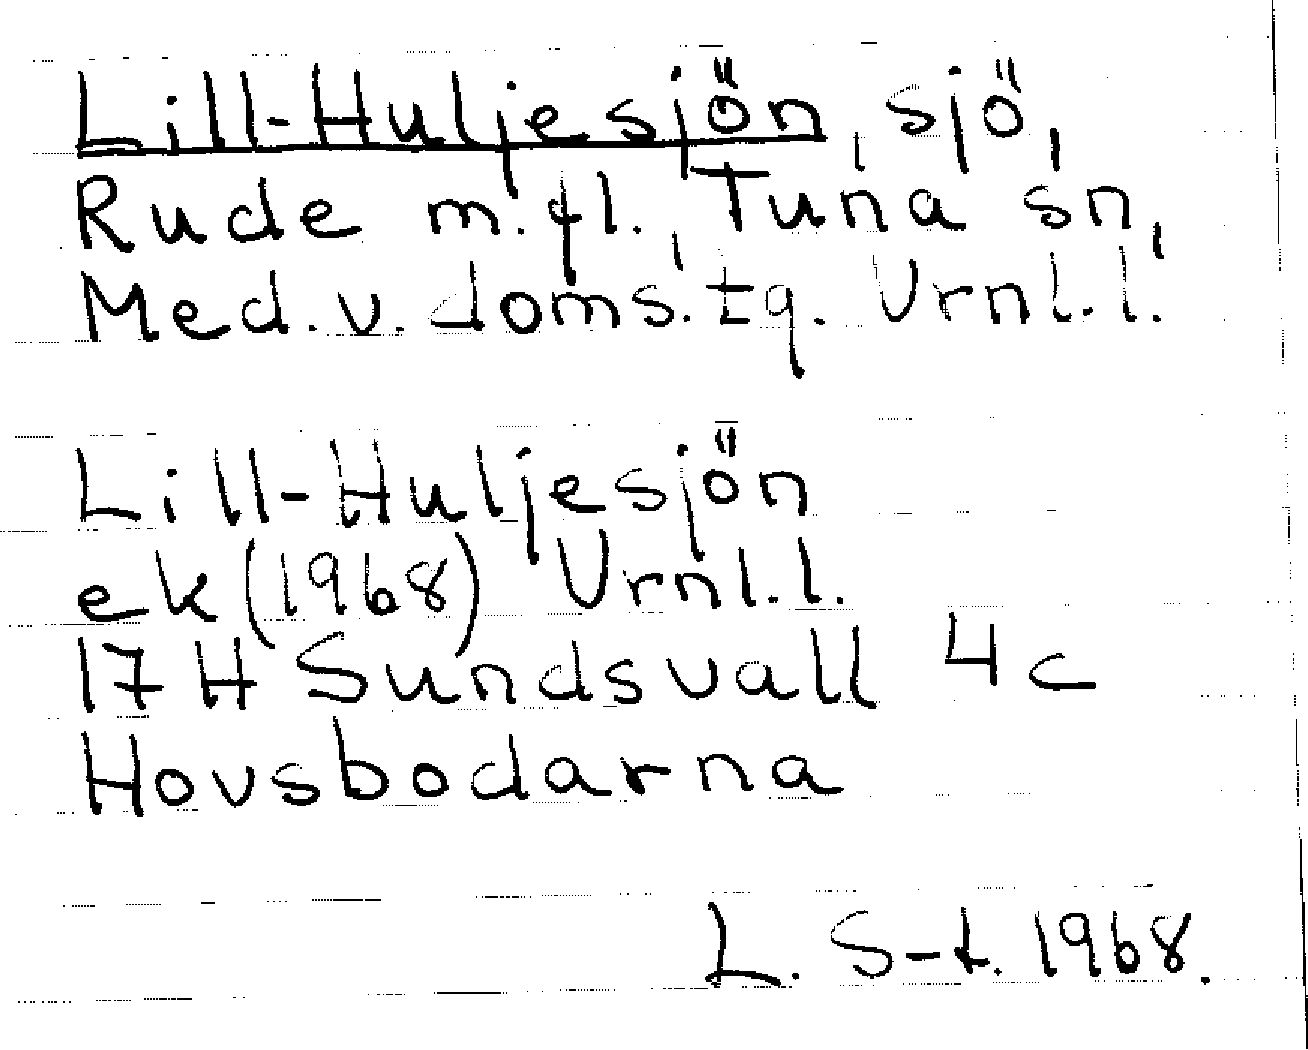 Lill-Huljesjön, sjö,
Rude m.fl., Tuna sn,
Med. v. doms. tg. Vrnl.l.
Lill-Huljesjön
ek (1968) Vrnl.l.
17 H Sundsvall 4c
Hovsbodarna
L. S-t. 1968.